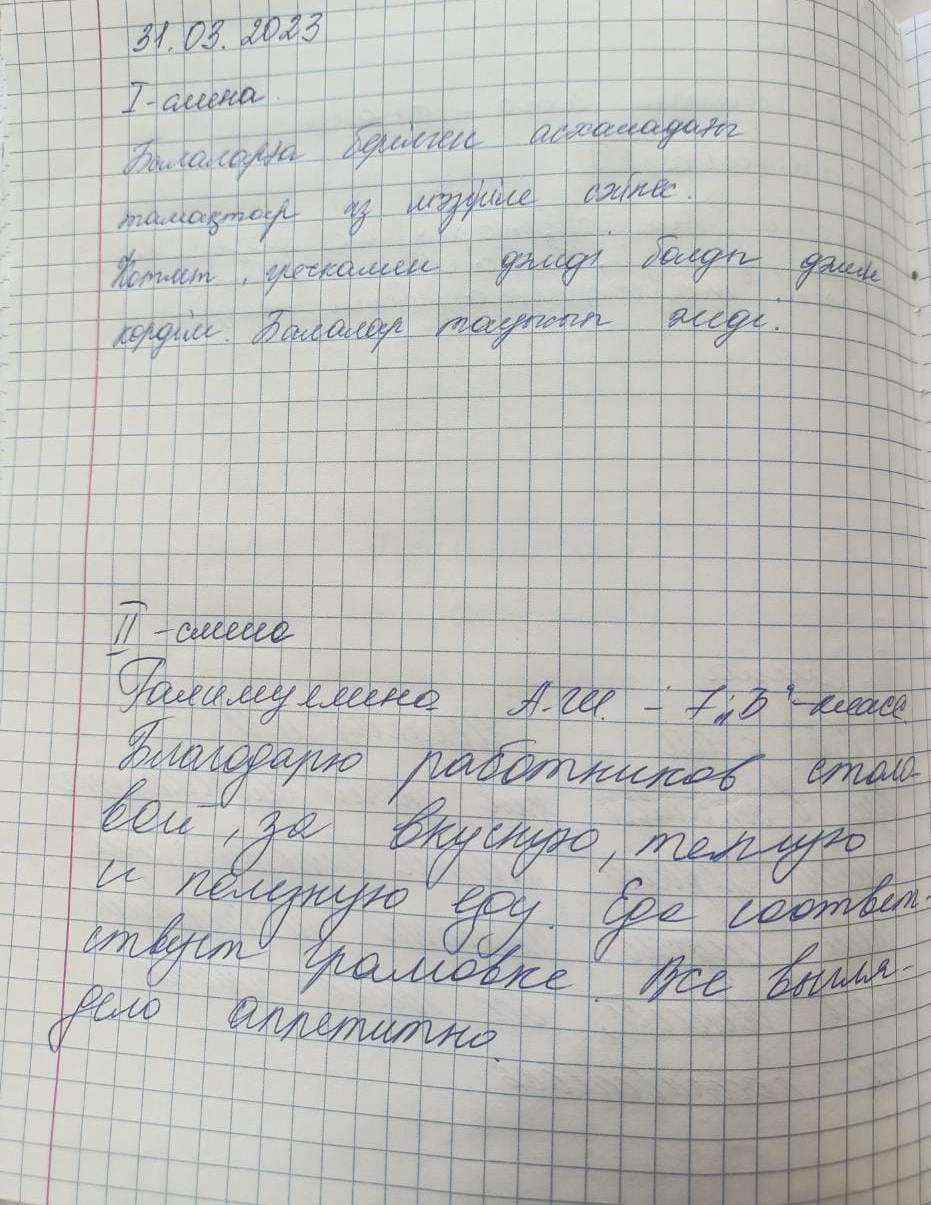 31.03.2023
I-смена.
Балаларға берілген асханадағы
тамақтар ас мәзіріне сәйкес.
Котлет, гречкамен дәмді болды дәмін
көрдім. Балалар тауысып жеді.
II-смена
Галимуллина А.Ш. - 7 „Б"-класс
Благодарю работников столо-
вой, за вкусную, теплую
и полезную еду. Еда соответ-
ствует грамовке. Все выгля-
дело аппетитно.